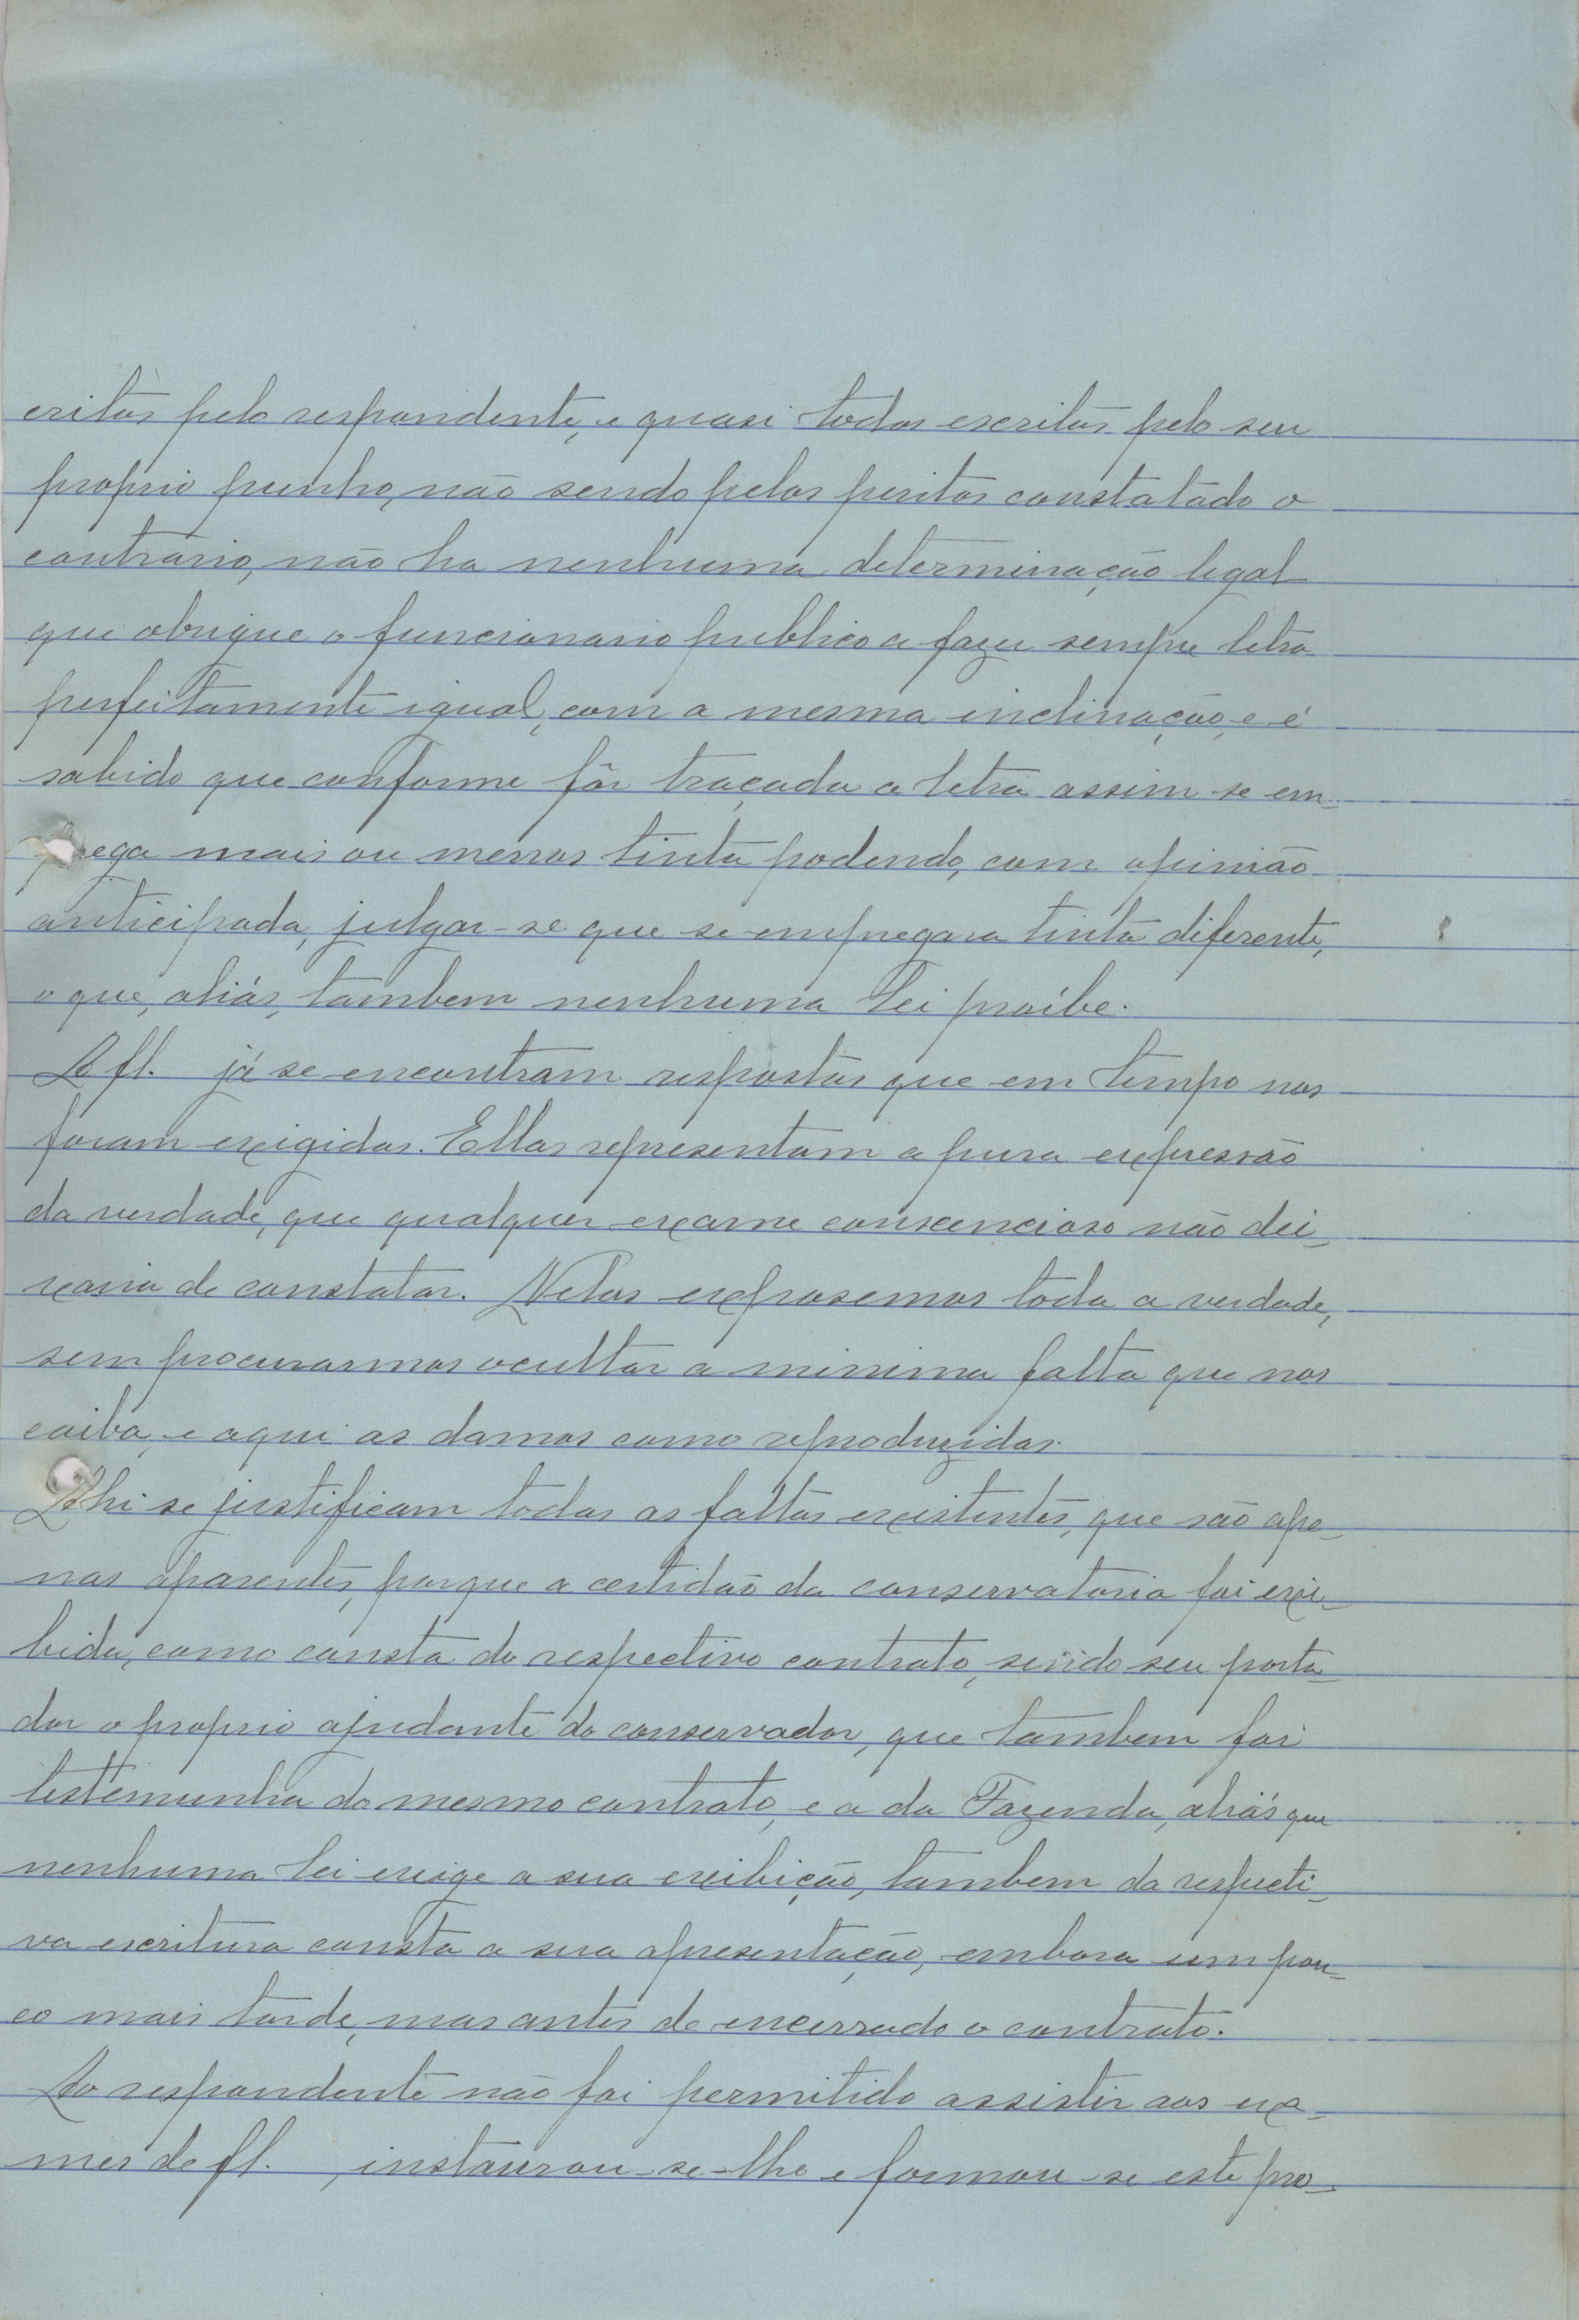 critos pelo respondente, e quasi todos escritos pelo seu
proprio punho, não sendo pelos peritos constatado o
contrario, não ha nenhuma determinação legal
que obrigue o funcionario publico a fazer sempre letra
perfeitamente igual, com a mesma inclinação, e é
sabido que conforme fôr traçada a letra assim se em-
prega mais ou menos tinta podendo, com opinião
anticipada, julgar-se que se empregara tinta diferente,
o que, aliás, tambem nenhuma lei proíbe.
A fl. já se encontram respostas que em tempo nos
foram exigidas. Ellas representam a pura expressão
da verdade, que qualquer exame consciencioso não dei-
xaria de constatar. Nelas exposemos toda a verdade,
sem procurarmos ocultar a minima falta que nos
caiba, e aqui as damos como reproduzidas.
Ahi se justificam todas as faltas existentes, que são ape-
nas aparentes, porque a certidão da conservatoria foi exi-
bida, como consta do respectivo contrato, sendo seu porta-
dor o proprio ajudante do conservador, que tambem foi
testemunha do mesmo contrato, e a da Fazenda, aliás que
nenhuma lei exige a sua exibição, tambem da respecti-
va escritura consta a sua apresentação, embora um pou-
co mais tarde, mas antes de encerrado o contrato.
Ao respondente não foi permitido assistir aos exa-
mes de fl. , instaurou-se-lhe e formou-se este pro-